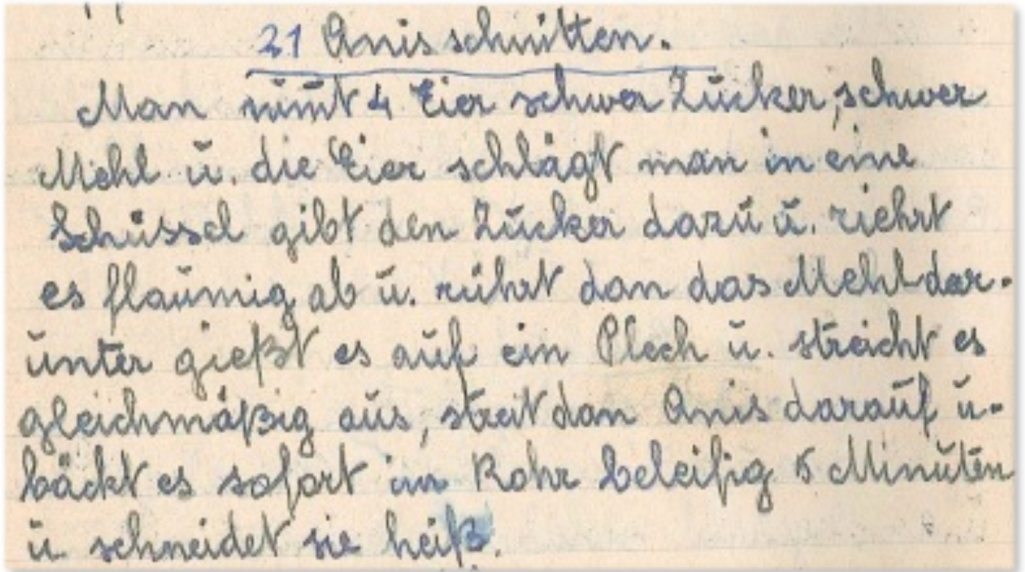 21 Anisschnitten.
Man nimt 4 Eier schwer Zucker, schwer
Mehl u. die Eier schlägt man in eine
Schüssel gibt den Zucker dazu u. riehrt
es flaumig ab u. rührt dan das Mehl dar-
unter gießt es auf ein Plech u. streicht es
gleichmäßig aus, streit dan Anis darauf u.
bäckt es sofort im Rohr beleifig 5 Minuten
u. schneidet sie heiß.